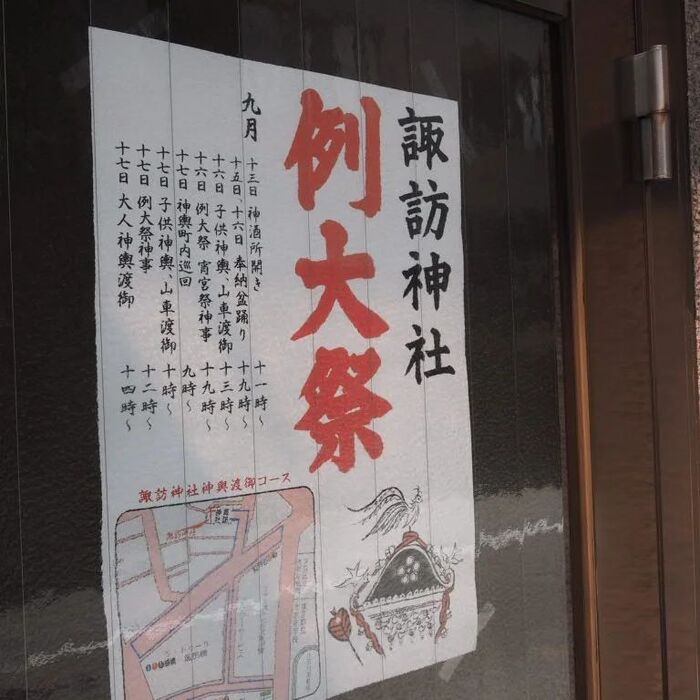 諏訪神社
例大祭
九月
十三日 神酒所開き 十一時〜
十五日、十六日 奉納盆踊り 十九時〜
十六日 子供神輿、山車渡御 十三時〜
十六日 例大祭 宵宮祭神事 十九時〜
十七日 神輿町内巡回 九時〜
十七日 子供神輿、山車渡御 十時〜
十七日 例大祭神事 十二時〜
十七日 大人神輿渡御 十四時〜
諏訪神社神輿渡御コース